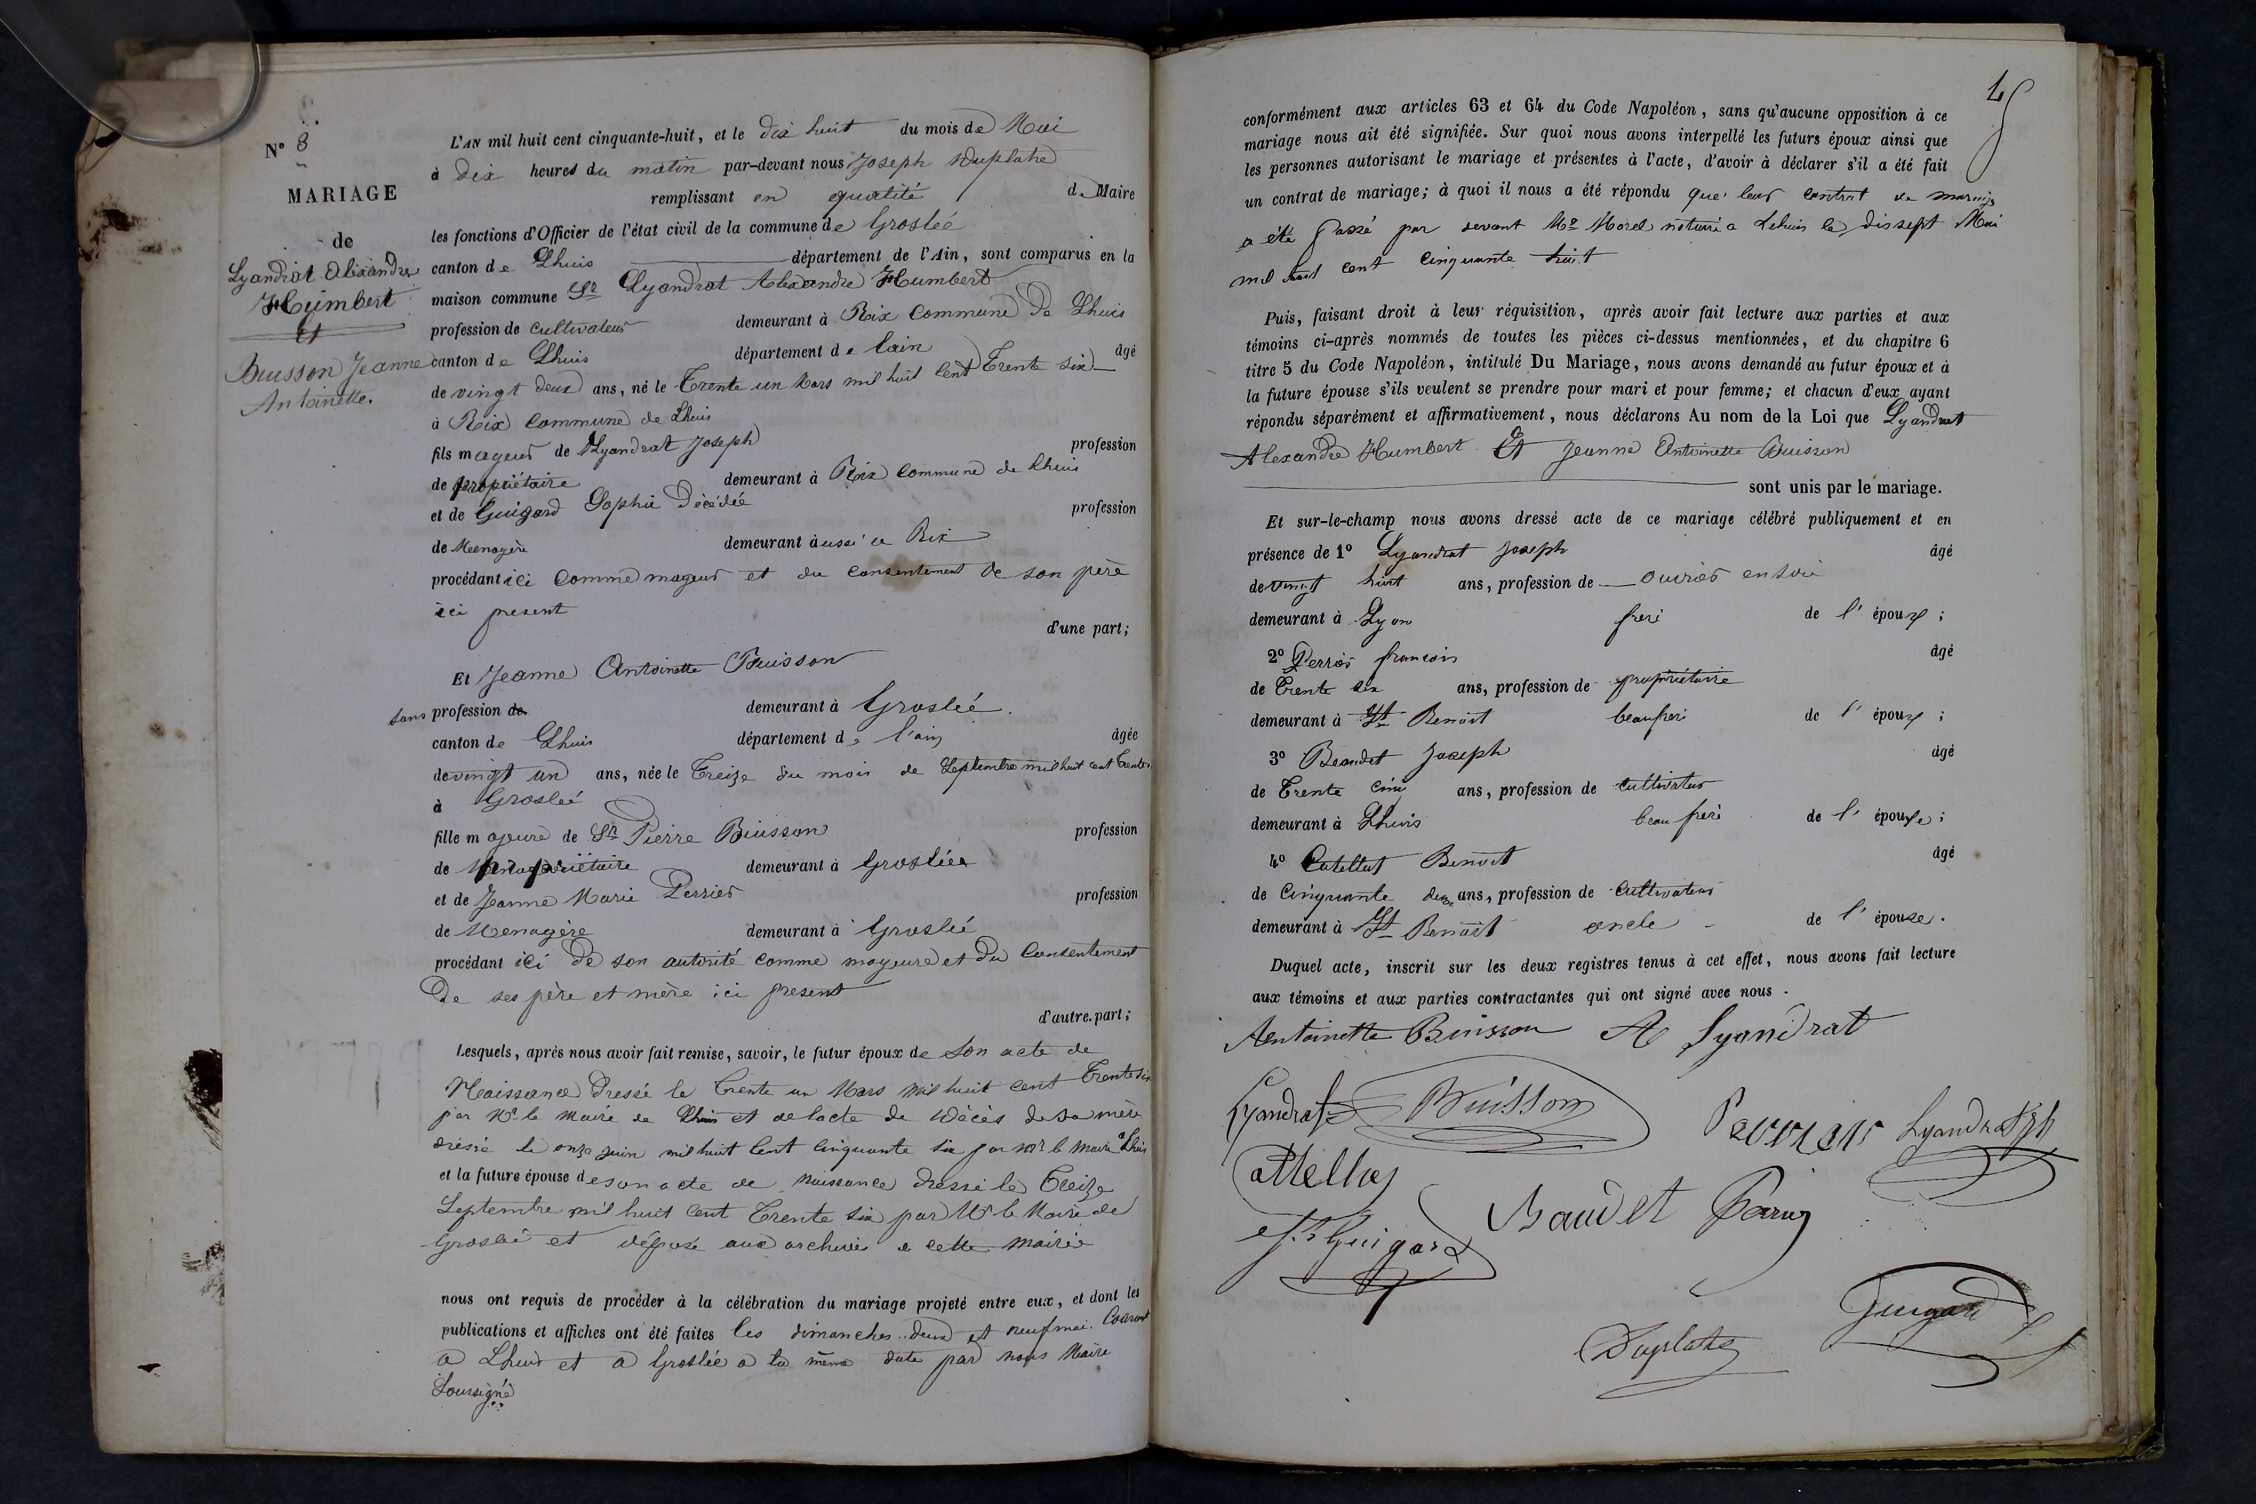 N° 8
MARIAGE
de
Lyandrat Alexandre
Humbert
Et
Buisson Jeanne
Antoinette.
L'AN mil huit cent cinquante-huit, et le dix huit du mois de Mai
à dix heures du matin par-devant nous Joseph Duplatre
remplissant en qualité de Maire
les fonctions d'Officier de l'état civil de la commune de Groslée
canton de Lhuis département de l'Ain, sont comparus en la
maison commune Sr Lyandrat Alexandre Humbert
profession de cultivateur demeurant à Rix Commune De Lhuis
canton de Lhuis département de lain âgé
de vingt deux ans, né le Trente un Mars mil huit Cent Trente six
à Rix Commune de Lhuis
fils mageur de Lyandrat Joseph profession
de propriétaire demeurant à Rix Commune de Lhuis
et de Guigard Sophie Décédée profession
de Menagère demeurant à aussi a Rix
procédant ici Comme mageur et du Consentement de son père
ici present
d'une part;
Et Jeanne Antoinette Buisson
sans profession de demeurant à Groslée.
canton de Lhuis département de l'ain âgée
de vingt un ans, née le Treize du mois de Septembre mil huit cent Trente
à Groslée
fille mageure de Sr Pierre Buisson profession
de propriétaire demeurant à Groslée
et de Jeanne Marie Perrier profession
de Menagère demeurant à Groslée
procédant ici De son autorité comme mageure et Du Consentement
De ses père et mère ici present
d'autre part;
Lesquels, après nous avoir fait remise, savoir, le futur époux de Son acte de
Naissance Dressé le Trente un Mars mil huit cent Trente six
par Mr le Maire de Lhuis et de lacte de Décès de sa mère
dressé le onze juin mil huit Cent Cinquante six par Mr le Maire Lhuis
et la future épouse de son acte de Naissance dressé le Treize
Septembre mil huit Cent Trente six par Mr le Maire de
Groslée et déposé aux archives de cette Mairie
nous ont requis de procéder à la célébration du mariage projeté entre eux, et dont les
publications et affiches ont été faites les dimanches deux et neuf mai Courant
a Lhuis et a Groslée a la même date par nous Maire
Soussigné
conformément aux articles 63 et 64 du Code Napoléon, sans qu'aucune opposition à ce
mariage nous ait été signifiée. Sur quoi nous avons interpellé les futurs époux ainsi que
les personnes autorisant le mariage et présentes à l'acte, d'avoir à déclarer s'il a été fait
un contrat de mariage; à quoi il nous a été répondu que leur contrat de mariage
a été passé par devant Me Morel notaire a Lehuis le dissept Mai
mil huit cent Cinquante huit
Puis, faisant droit à leur réquisition, après avoir fait lecture aux parties et aux
témoins ci-après nommés de toutes les pièces ci-dessus mentionnées, et du chapitre 6
titre 5 du Code Napoléon, intitulé Du Mariage, nous avons demandé au futur époux et à
la future épouse s'ils veulent se prendre pour mari et pour femme; et chacun d'eux ayant
répondu séparément et affirmativement, nous déclarons Au nom de la Loi que Lyandrat
Alexandre Humbert Et Jeanne Antoinette Buisson
sont unis par le mariage.
Et sur-le-champ nous avons dressé acte de ce mariage célébré publiquement et en
présence de 1° Lyandrat Joseph âgé
de vingt huit ans, profession de ouvrier en soie
demeurant à Lyon frere de l' époux;
2° Perrier francois âgé
de Trente six ans, profession de propriétaire
demeurant à St Benoit beaufrere de l' époux;
3° Beaudet Joseph âgé
de Trente Cinq ans, profession de Cultivateur
demeurant à Lhuis beau frère de l' épouse;
4° Benoit âgé
de Cinquante deux ans, profession de Cultivateur
demeurant à St Benoit oncle de l' épouse.
Duquel acte, inscrit sur les deux registres tenus à cet effet, nous avons fait lecture
aux témoins et aux parties contractantes qui ont signé avec nous.
Antoinette Buisson A Lyandrat
Lyandrat Buisson Perrier Lyandrat Jph
Baudet
Guigard
Duplatre Guigard